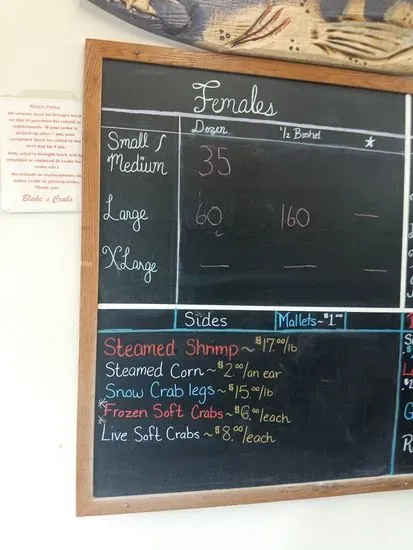 Females
Dozen 1/2 Bushel *
Small/
Medium 35
Large 60 160 —
XLarge — — —
Sides Mallets~$1.00
Steamed Shrimp~$17.00/lb
Steamed Corn~$2.00/an ear
Snow Crab legs~$15.00/lb
*Frozen Soft Crabs~$6.00/each
*Live Soft Crabs~$8.00/each
Return Policy
All returns must be brought back
on day of purchase for refund or
replacement. If your order is
picked up after 7 pm, your
complaint must be called in the
next day by 4 pm.
Only what is brought back will be
refunded or replaced
No refunds or replacements on
Thank you,
Blake's Crabs